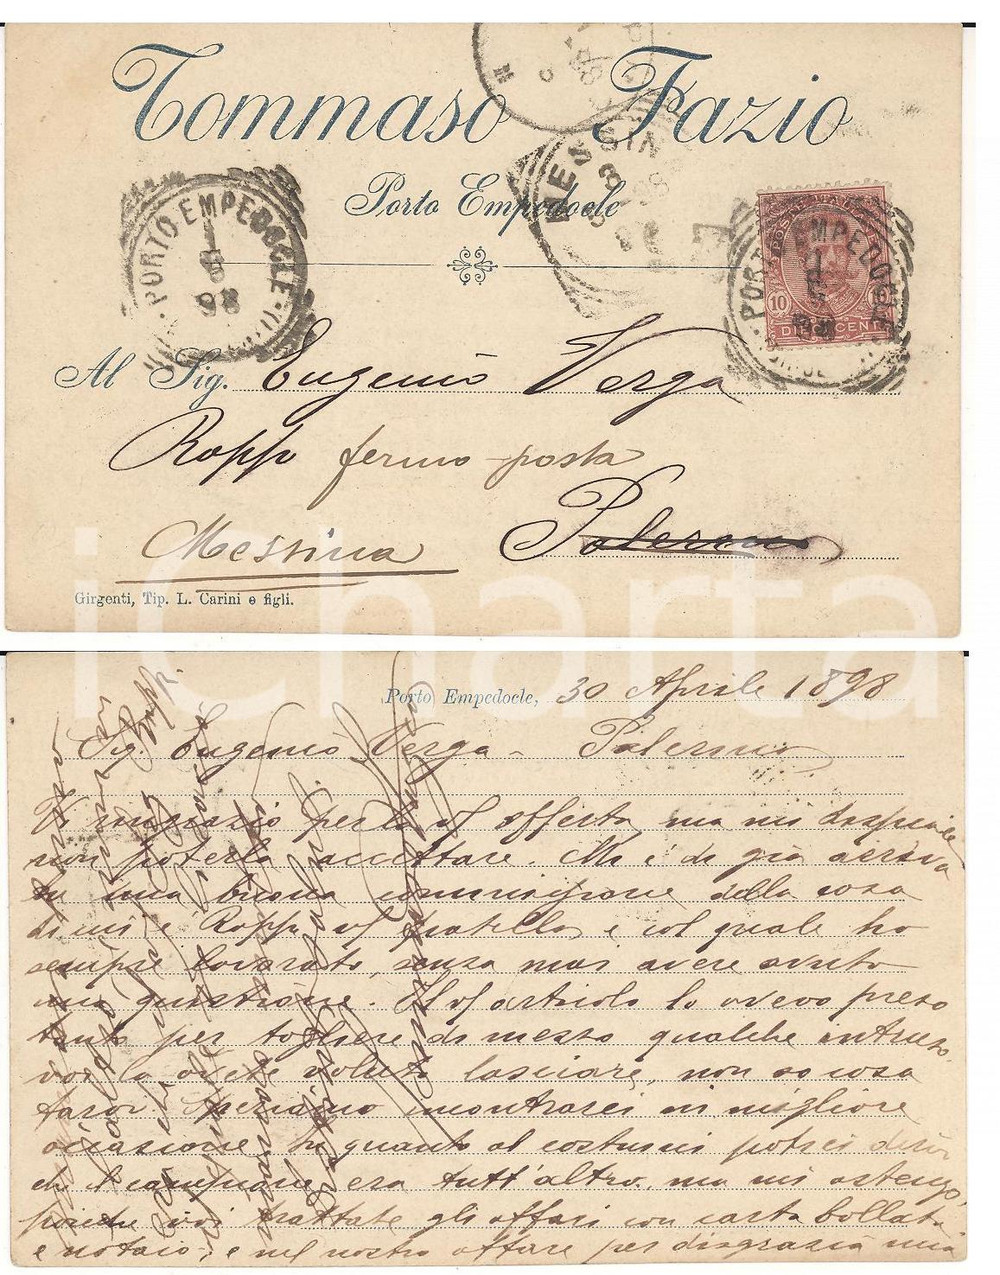 Tommaso Fazio
Porto Empedocle
MESSINA
3
98
PORTO EMPEDOCLE
1
5
98
POSTE ITALIANE
10
DIECI CENT
PORTO EMPEDOCLE
Al Sig. Eugenio Verga
Ropp fermo posta
Palermo
Messina
Girgenti, Tip. L. Carini e figli.
iCharta
Porto Empedocle, 30 Aprile 1898
Sig. Eugenio Verga - Palermo
Vi ringrazio per la vs offerta, ma mi dispiace
non poterla accettare. Mi è di già arriva
ta una buona commissione della casa
di cui è Ropp vs fratello e col quale ho
sempre lavorato, senza mai avere avuto
una questione. Il vs articolo lo avevo preso
tanto per togliere di mezzo qualche intruso
voi lo avete voluto lasciare, non so cosa
farvi. Speriamo incontrarci in migliore
occasione. In quanto al costumi potrei dirvi
che il campione era tutt'altro, ma mi astengo
poichè voi trattate gli affari con carta bollata
e notaio; e nel nostro affare per disgrazia mia